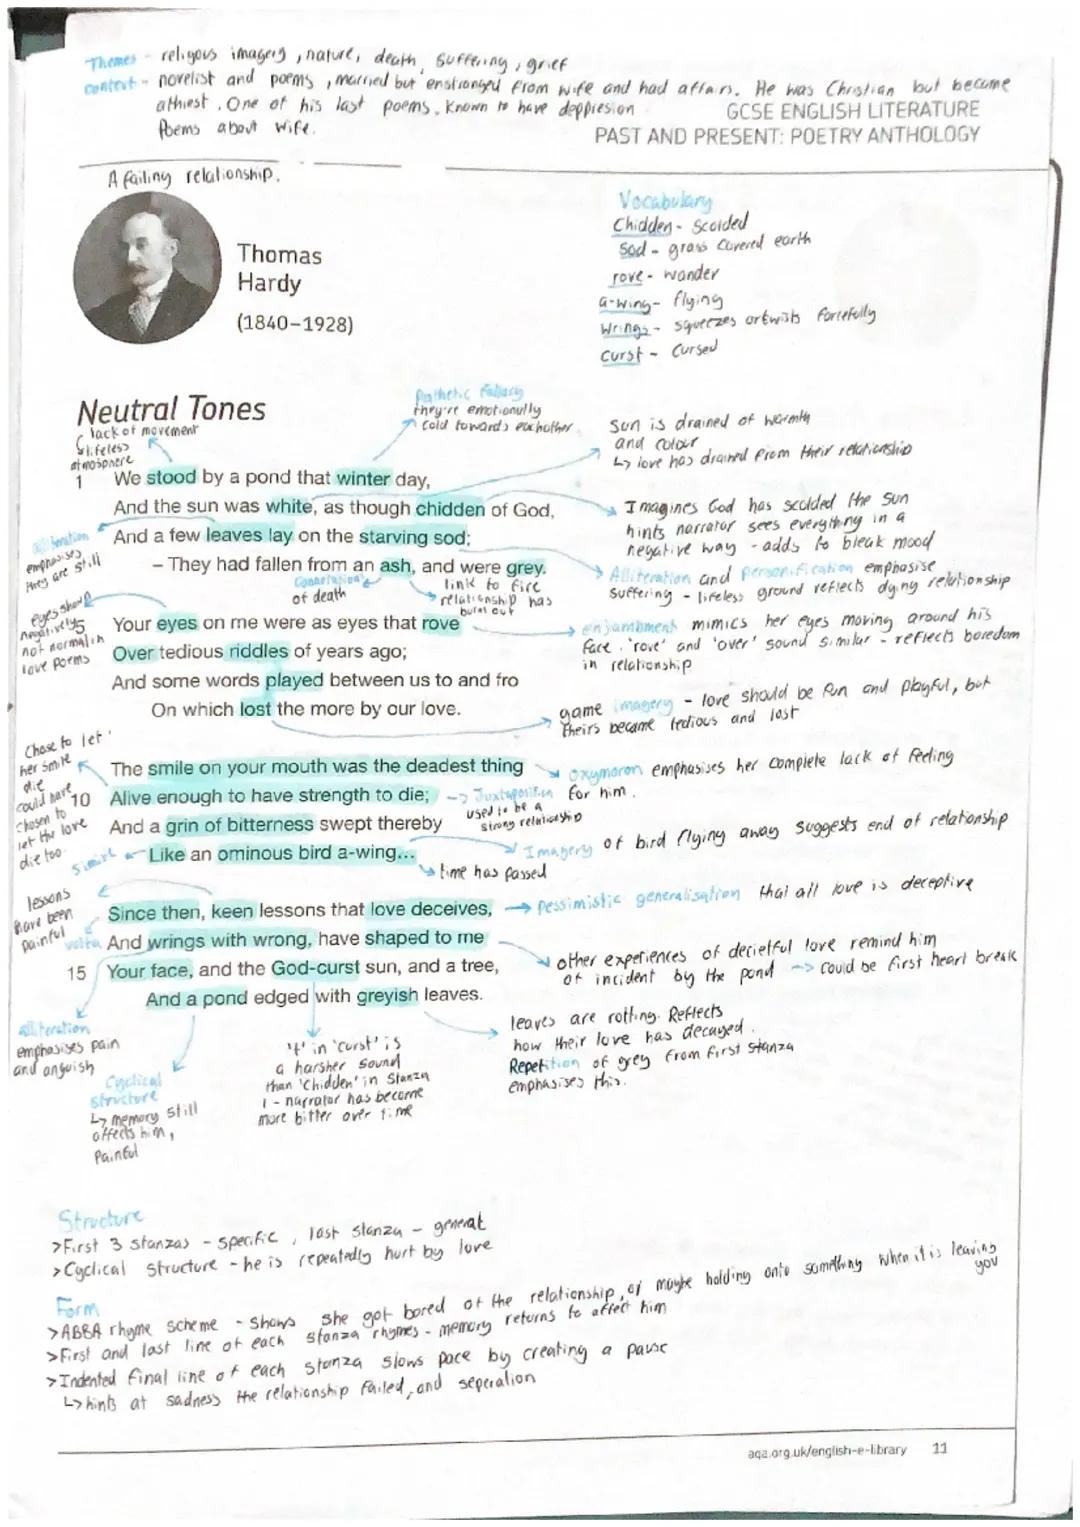 Themes - religous imagery, nature, death, suffering, grief
context - novelist and poems, married but enstranged from wife and had affairs. He was Christian but became
athiest. One of his last poems. Known to have deppresion
Poems about wife.
GCSE ENGLISH LITERATURE
PAST AND PRESENT: POETRY ANTHOLOGY
A failing relationship.
Thomas
Hardy
(1840–1928)
Vocabulary
Chidden - Scolded
Sod - grass covered earth
rove - wander
a-wing - flying
Wrings - squeezes or twists forcefully
curst - cursed
Neutral Tones
lack of movement
lifeless
atmosphere
Pathetic fallacy
they're emotionally
cold towards eachother
sun is drained of warmth
and colour
↳ love has drained from their relationship
1 We stood by a pond that winter day,
And the sun was white, as though chidden of God,
And a few leaves lay on the starving sod;
– They had fallen from an ash, and were grey.
alliteration
emphasises
they are still
Connotations
of death
link to fire
relationship has
burnt out
Imagines God has scolded the sun
hints narrator sees everything in a
negative way - adds to bleak mood
Alliteration and personification emphasise
suffering - lifeless ground reflects dying relationship
eyes shown
negatively
not normal in
love poems
5 Your eyes on me were as eyes that rove
Over tedious riddles of years ago;
And some words played between us to and fro
On which lost the more by our love.
enjambment mimics her eyes moving around his
face. 'rove' and 'over' sound similar - reflects boredom
in relationship
game imagery - love should be fun and playful, but
theirs became tedious and lost
Chose to let
her smile
die
could have
chosen to
let the love
die too.
The smile on your mouth was the deadest thing
10 Alive enough to have strength to die;
And a grin of bitterness swept thereby
Like an ominous bird a-wing...
Oxymoron emphasises her complete lack of feeling
for him.
-> Juxtaposition
used to be a
strong relationship
simile
Imagery of bird flying away suggests end of relationship
time has passed
lessons
have been
painful
volta
Since then, keen lessons that love deceives,
And wrings with wrong, have shaped to me
15 Your face, and the God-curst sun, and a tree,
And a pond edged with greyish leaves.
Pessimistic generalisation that all love is deceptive
other experiences of decietful love remind him
of incident by the pond -> could be first heart break
alliteration
emphasises pain
and anguish
Cyclical
structure
↳ memory still
affects him,
Painful
't' in 'curst' is
a harsher sound
than 'chidden' in Stanza
1 - narrator has become
more bitter over time
leaves are rotting. Reflects
how their love has decayed.
Repetition of grey from first stanza
emphasises this.
Structure
>First 3 stanzas - specific, last stanza - general
>Cyclical structure - he is repeatedly hurt by love
Form
>ABBA rhyme scheme - shows she got bored of the relationship, or maybe holding onto something when it is leaving
you
>First and last line of each stanza rhymes - memory returns to affect him
>Indented final line of each stanza slows pace by creating a pause
↳ hints at sadness the relationship failed, and seperation
aqa.org.uk/english-e-library 11